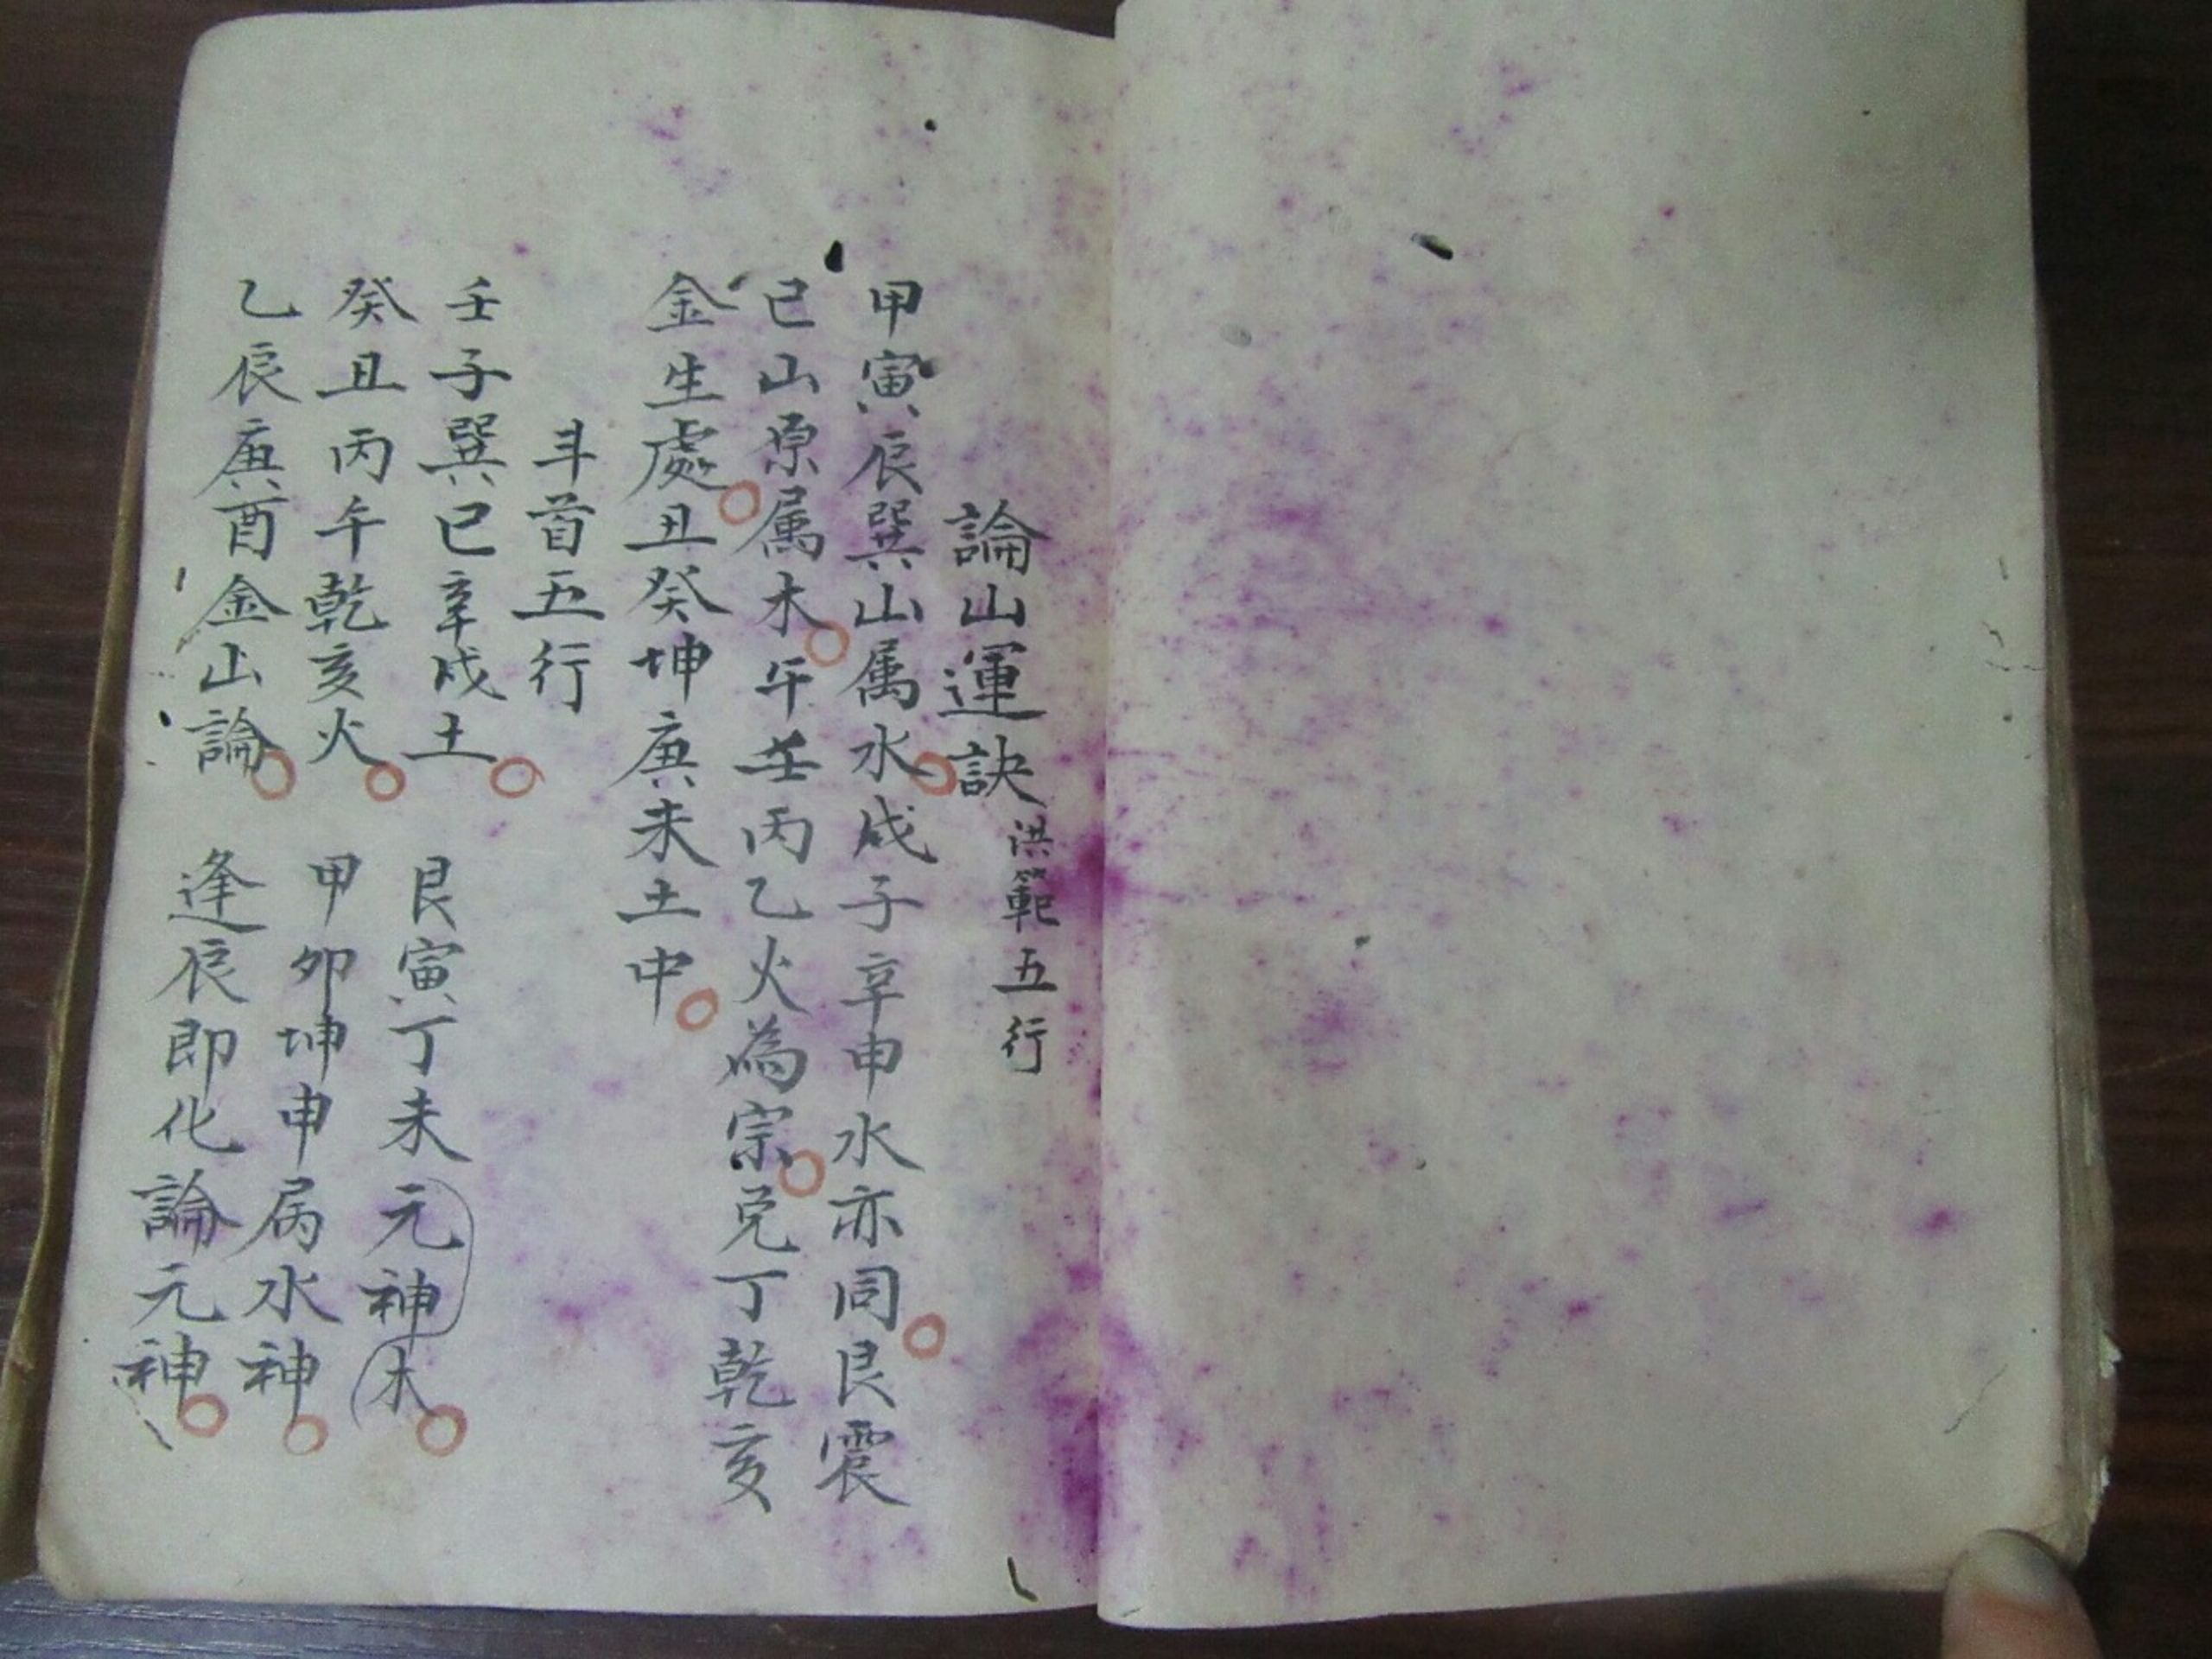 論山運訣 洪範五行
甲寅辰巽山属水戌子辛申水亦同艮震
巳山原属木午壬丙乙火為宗兌丁乾亥
金生處丑癸坤庚未土中
斗首五行
壬子巽巳辛戌土 艮寅丁未元神木
癸丑丙午乾亥火 甲卯坤申属水神
乙辰庚酉金山論 逢辰即化論元神